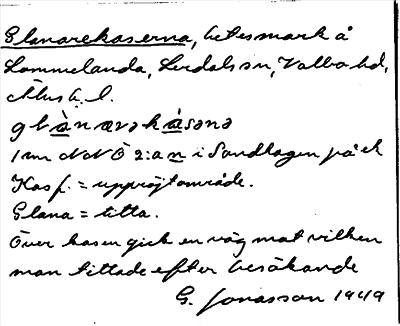 Glanarekaserna, betesmark å
Lommelanda, Lerdals sn, Valbo hd,
Älvsb. l.
glànarəkàsənə
1 mm NNÖ 2:an i Sandhagen på ek
Kas f. = uppröjt område.
Glana = titta.
Över kasen gick en väg mot vilken
man tittade efter besökande
G. Jonasson 1949